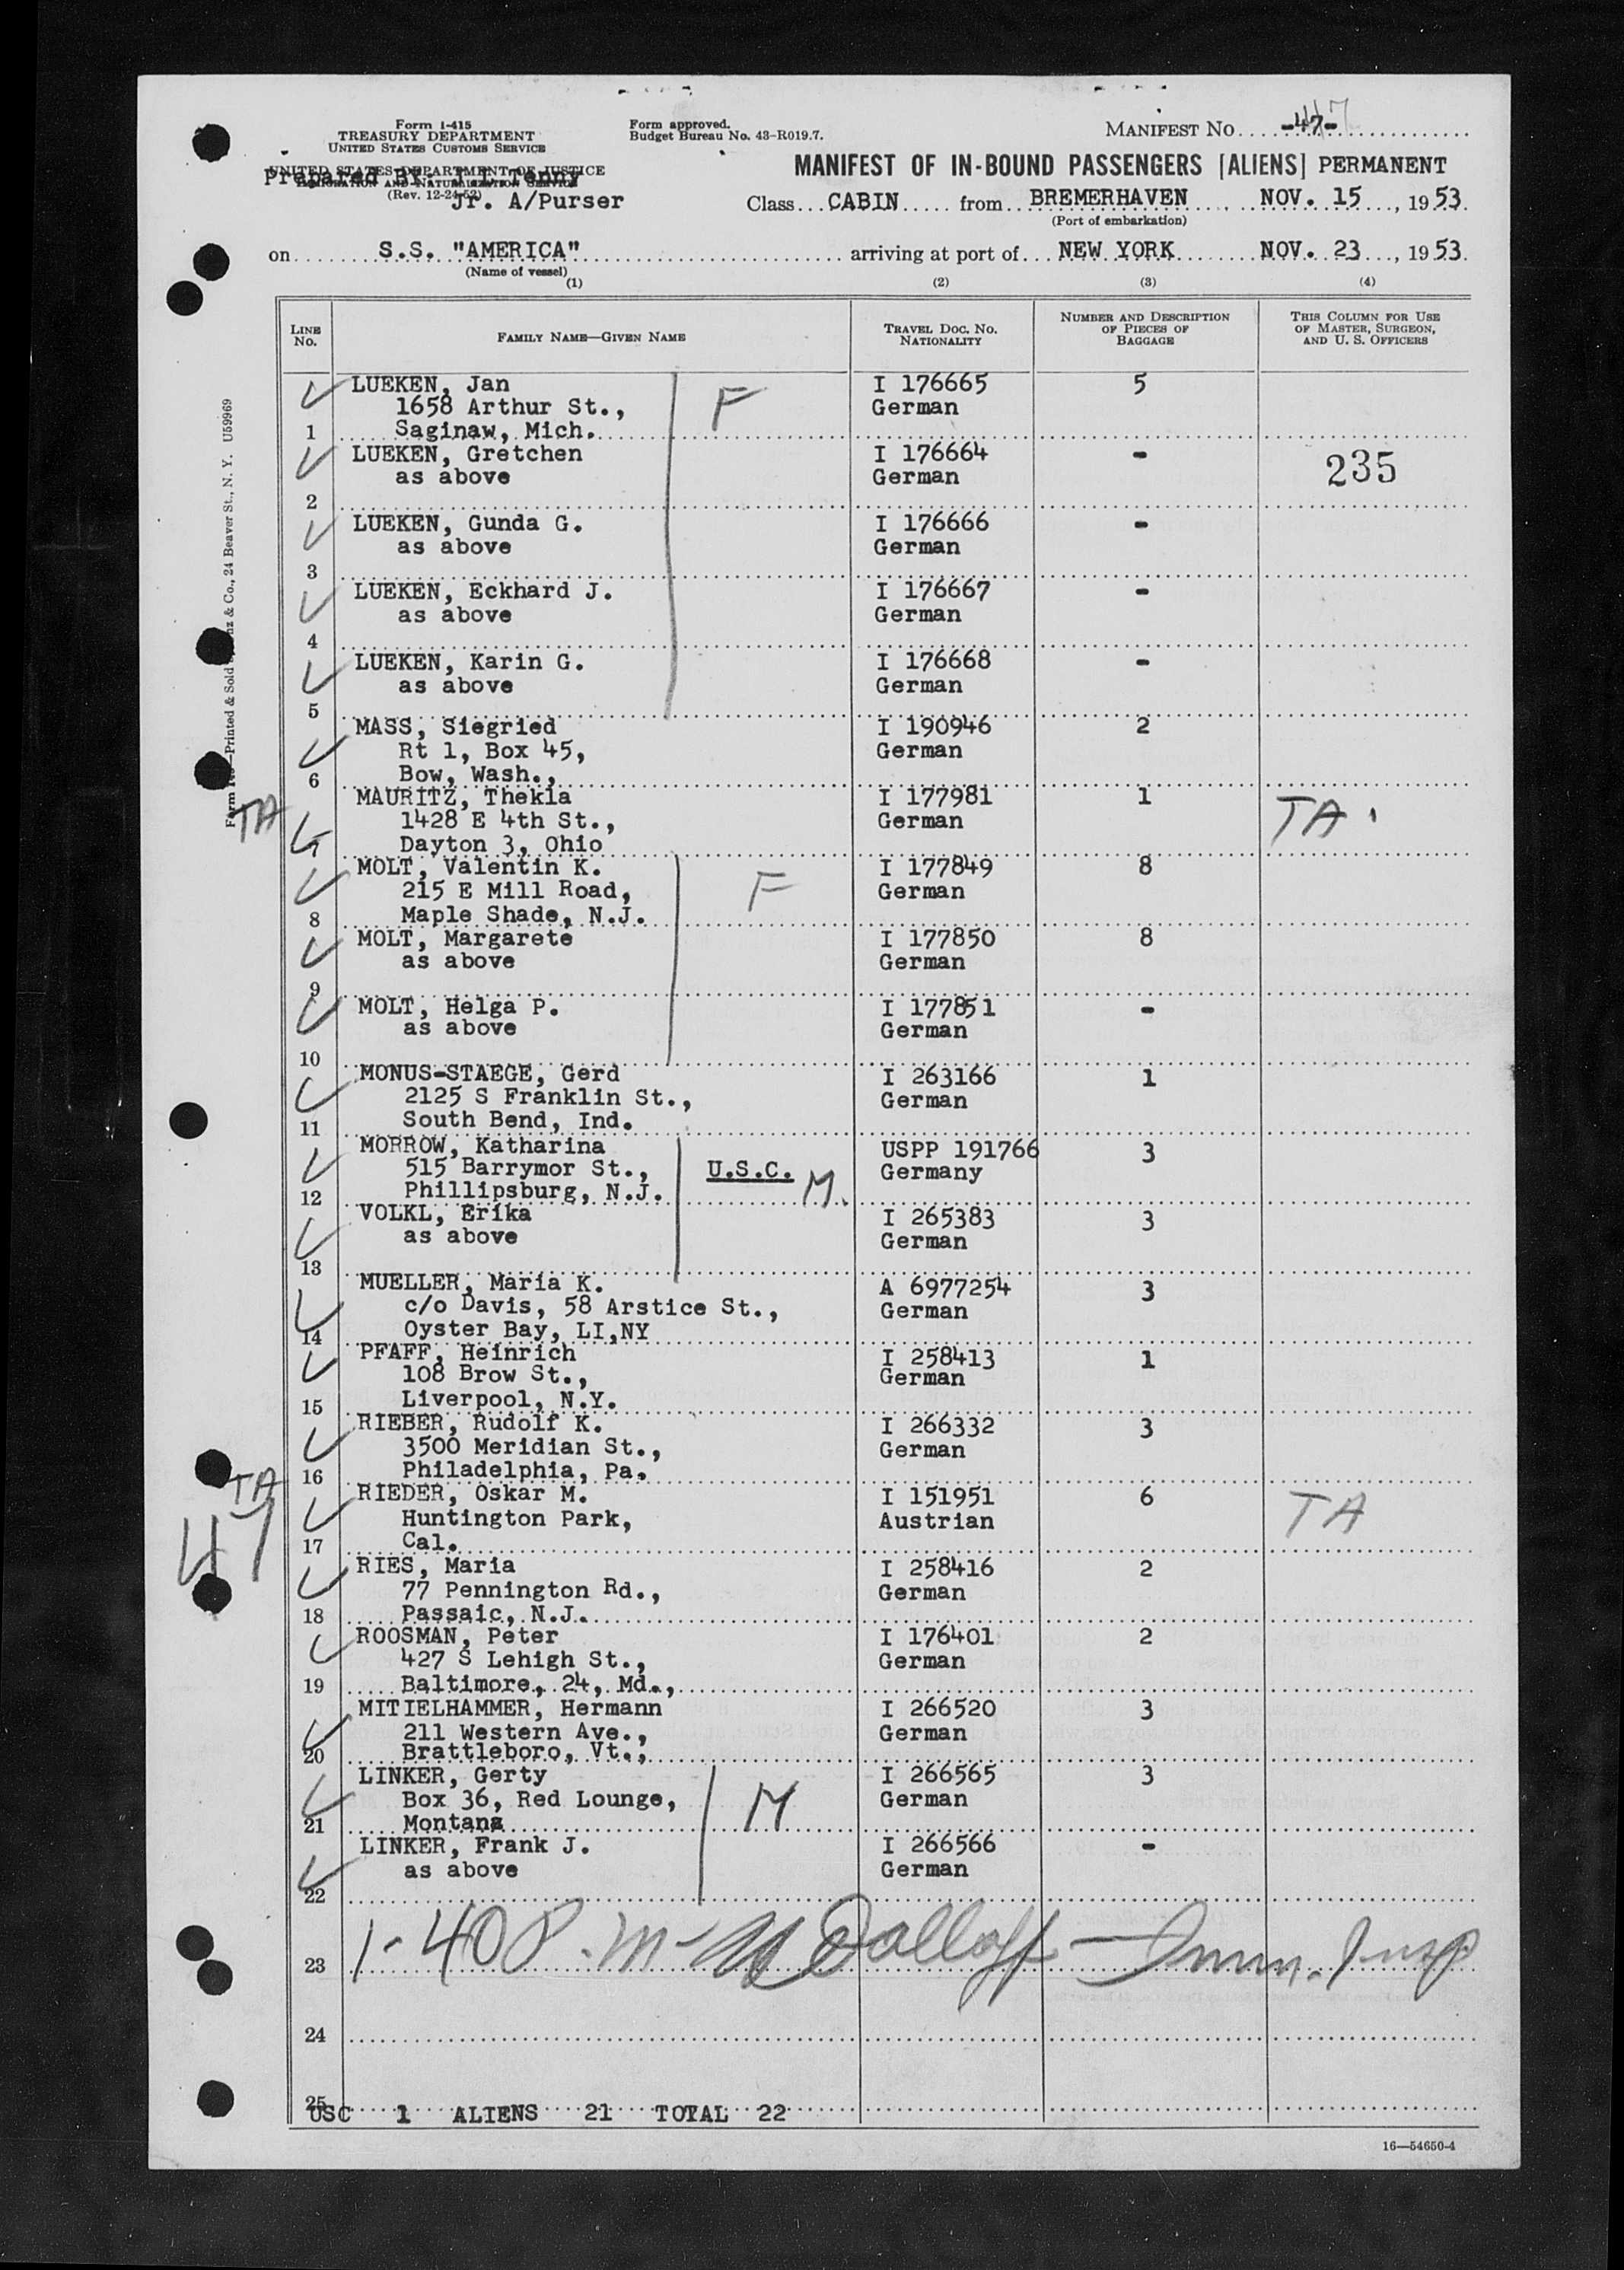 Form I-415
TREASURY DEPARTMENT
UNITED STATES CUSTOMS SERVICE
UNITED STATES DEPARTMENT OF JUSTICE
IMMIGRATION AND NATURALIZATION SERVICE
(Rev. 12-24-52)
Prepared By:
Jr. A/Purser
Form approved.
Budget Bureau No. 43-R019.7.
MANIFEST NO. -47-
MANIFEST OF IN-BOUND PASSENGERS [ALIENS] PERMANENT
Class CABIN from BREMERHAVEN NOV. 15, 1953.
(Port of embarkation)
on S.S. "AMERICA" arriving at port of NEW YORK NOV. 23, 1953.
(Name of vessel)
(1) (2) (3) (4)
LINE NO. FAMILY NAME—GIVEN NAME TRAVEL DOC. NO. NATIONALITY NUMBER AND DESCRIPTION OF PIECES OF BAGGAGE THIS COLUMN FOR USE OF MASTER, SURGEON, AND U. S. OFFICERS
LUEKEN, Jan F I 176665 5
1658 Arthur St., German
1 Saginaw, Mich.
LUEKEN, Gretchen I 176664 - 235
as above German
2
LUEKEN, Gunda G. I 176666 -
as above German
3
LUEKEN, Eckhard J. I 176667 -
as above German
4
LUEKEN, Karin G. I 176668 -
as above German
5
MASS, Siegried I 190946 2
Rt 1, Box 45, German
6 Bow, Wash.,
MAURITZ, Thekla I 177981 1
TA 1428 E 4th St., German TA.
7 Dayton 3, Ohio
MOLT, Valentin K. I 177849 8
215 E Mill Road, F German
8 Maple Shade, N.J.
MOLT, Margarete I 177850 8
as above German
9
MOLT, Helga P. I 177851 -
as above German
10
MONUS-STAEGE, Gerd I 263166 1
2125 S Franklin St., German
11 South Bend, Ind.
MORROW, Katharina USPP 191766 3
515 Barrymor St., U.S.C. M. Germany
12 Phillipsburg, N.J.
VOLKL, Erika I 265383 3
as above German
13
MUELLER, Maria K. A 6977254 3
c/o Davis, 58 Arstice St., German
14 Oyster Bay, LI,NY
PFAFF, Heinrich I 258413 1
108 Brow St., German
15 Liverpool, N.Y.
RIEBER, Rudolf K. I 266332 3
3500 Meridian St., German
16 Philadelphia, Pa.
TA RIEDER, Oskar M. I 151951 6 TA
47 Huntington Park, Austrian
17 Cal.
RIES, Maria I 258416 2
77 Pennington Rd., German
18 Passaic, N.J.
ROOSMAN, Peter I 176401 2
427 S Lehigh St., German
19 Baltimore, 24, Md.,
MITIELHAMMER, Hermann I 266520 3
211 Western Ave., German
20 Brattleboro, Vt.,
LINKER, Gerty I 266565 3
Box 36, Red Lounge, M German
21 Montana
LINKER, Frank J. I 266566 -
as above German
22
23 1-40 P.m- Dalloff — Imm. Insp
24
25
USC 1 ALIENS 21 TOTAL 22
16—54650-4
& Co., 24 Beaver St., N. Y. U59969
—Printed & Sold